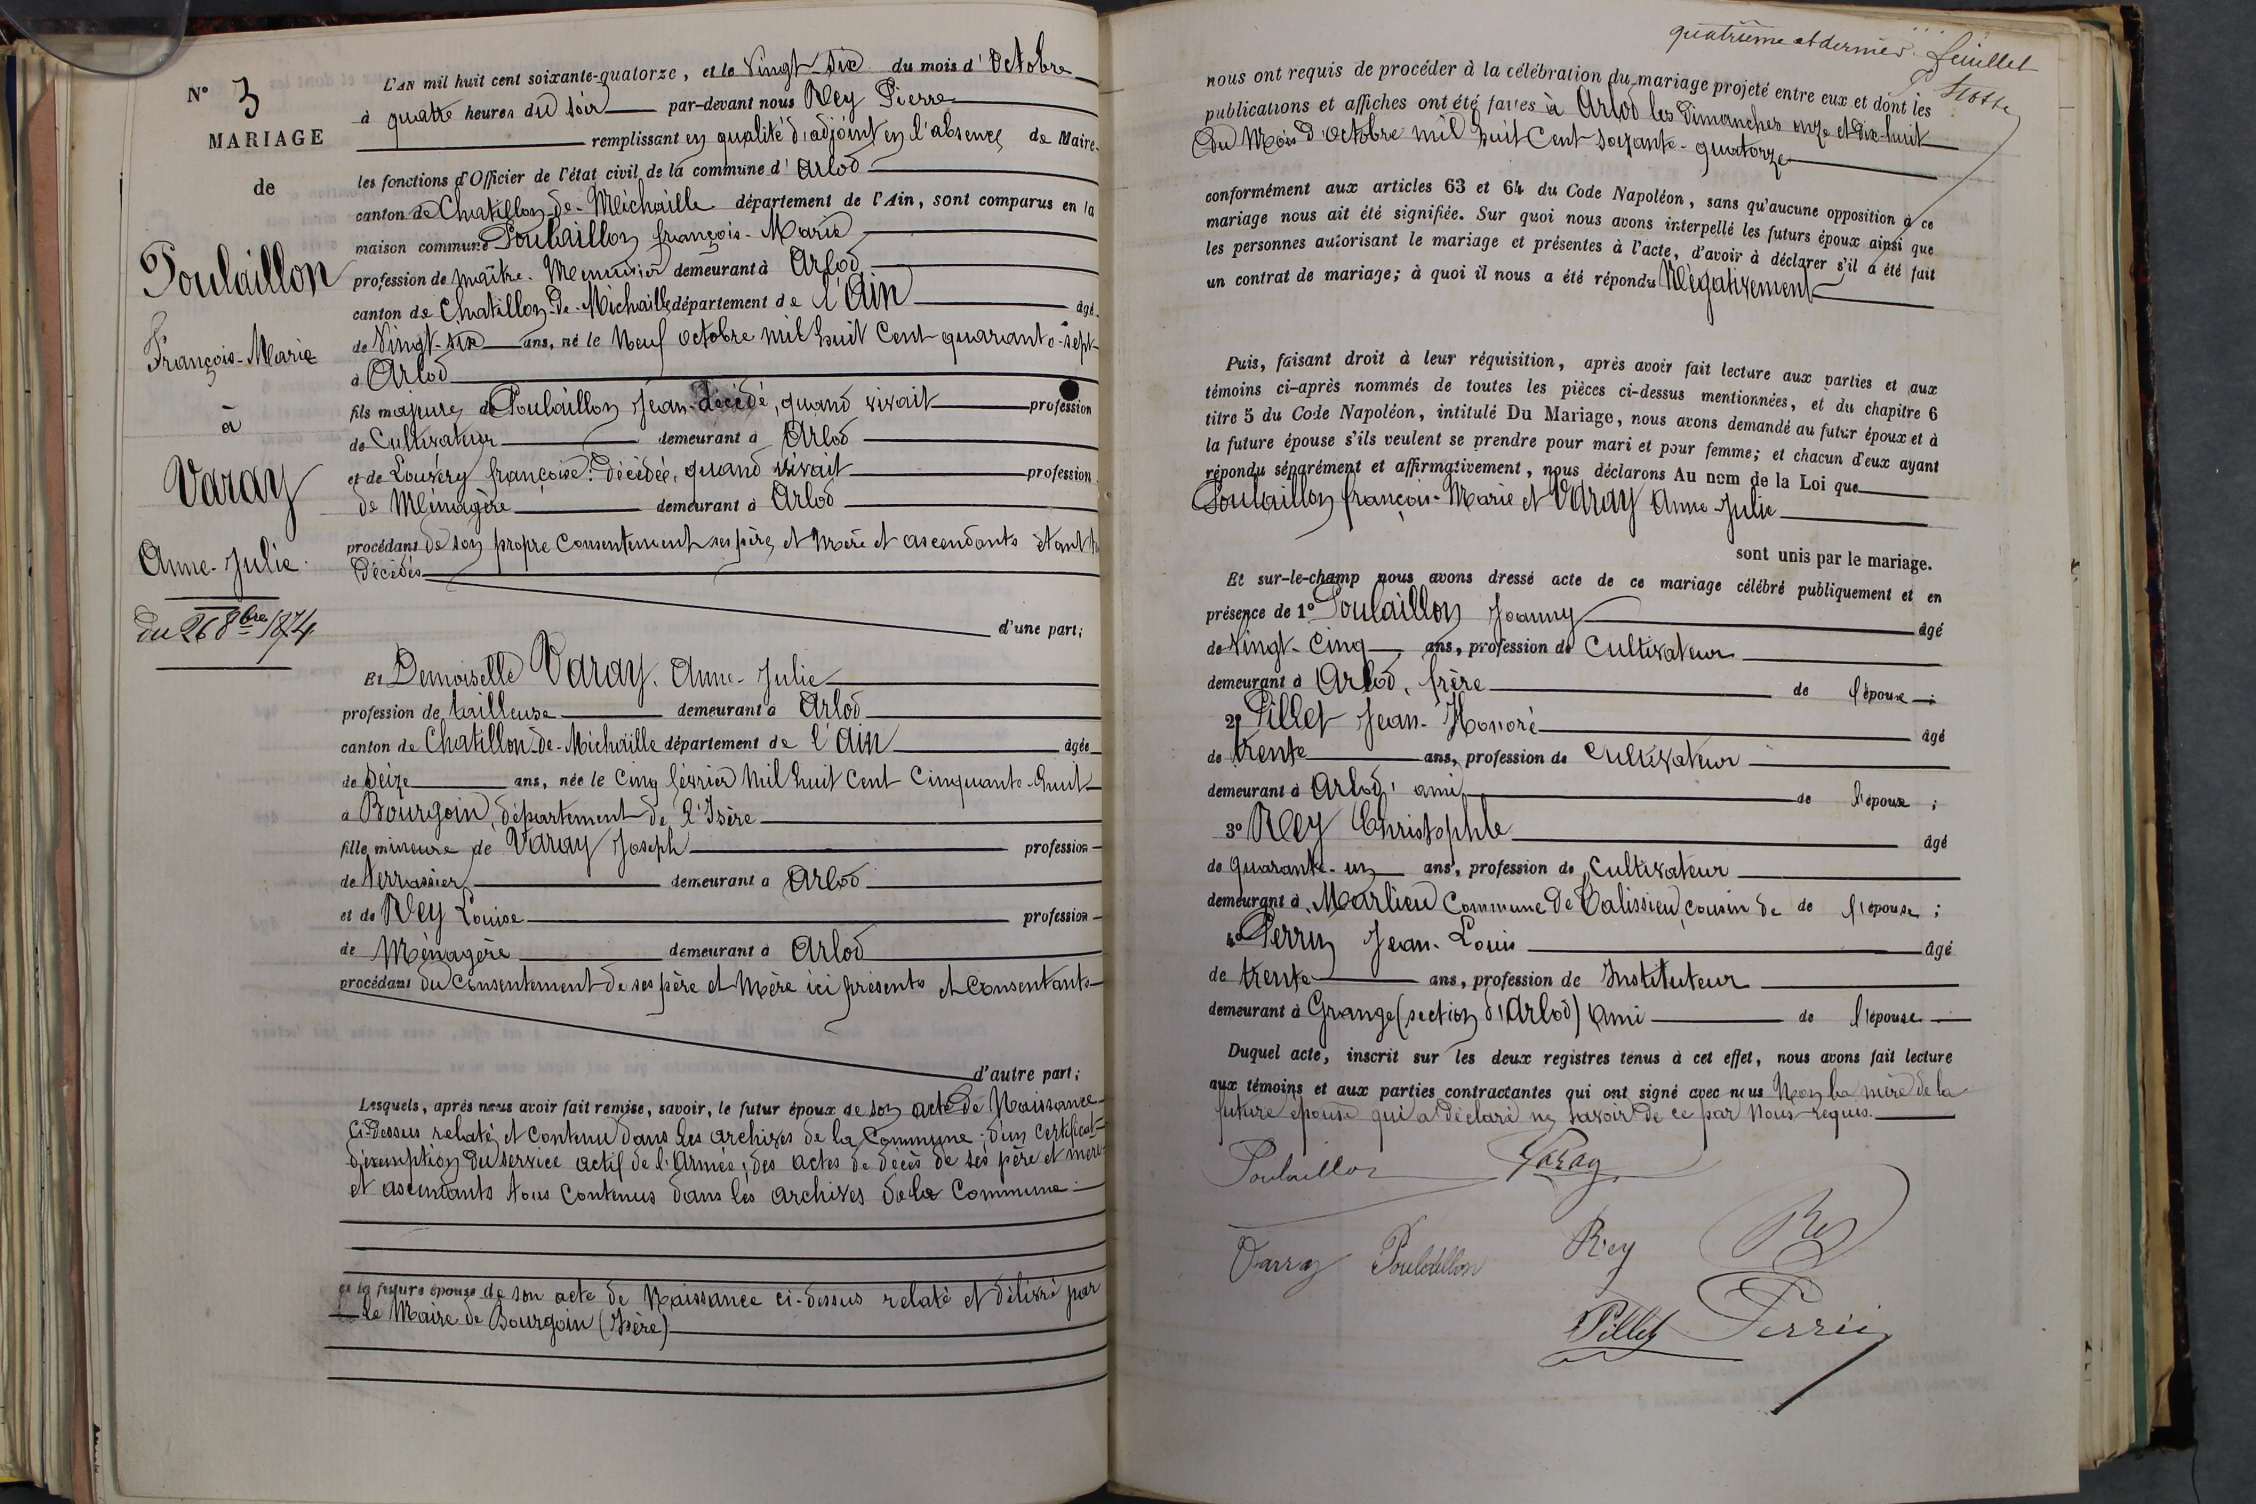 N° 3
MARIAGE
de
Poulaillon
François-Marie
à
Varay
Anne-Julie.
du 26 8bre 1874
L'AN mil huit cent soixante-quatorze, et le Vingt-six du mois d'Octobre
à quatre heures du soir par-devant nous Rey Pierre
remplissant en qualité d'adjoint en l'absence de Maire
les fonctions d'Officier de l'état civil de la commune d'Arlod
canton de Chatillon-de-Michaille département de l'Ain, sont comparus en la
maison commune Poulaillon françois-Marie
profession de maître-Menuisier demeurant à Arlod
canton de Chatillon-de-Michaille département de l'Ain âgé
de Vingt-six ans, né le Neuf octobre mil huit Cent quarante-sept
à Arlod
fils majeur de Poulaillon Jean décédé, quand vivait profession
de Cultivateur demeurant à Arlod
et de Louvéry françoise décédée, quand vivait profession
de Ménagère demeurant à Arlod
procédant de son propre Consentement ses père et Mère et ascendants étant
Décédés
d'une part;
Et Demoiselle Varay Anne-Julie
profession de tailleuse demeurant à Arlod
canton de Chatillon-de-Michaille département de l'Ain âgée
de Seize ans, née le Cinq février Mil huit Cent Cinquante-huit
à Bourgoin, département de l'Isère
fille mineure de Varay Joseph profession
de terrassier demeurant à Arlod
et de Rey Louise profession
de Ménagère demeurant à Arlod
procédant du Consentement de ses père et Mère ici présents et Consentants
d'autre part;
Lesquels, après nous avoir fait remise, savoir, le futur époux de son acte de Naissance
Ci-Dessus relaté et Contenu dans les archives de la Commune; d'un Certificat
d'exemption du service actif de l'Armée; des actes de décès de ses père et mère
et ascendants tous Contenus dans les archives de la Commune
et la future épouse de son acte de Naissance ci-dessus relaté et délivré par
le Maire de Bourgoin (Isère)
quatrième et dernier feuillet
nous ont requis de procéder à la célébration du mariage projeté entre eux et dont les
publications et affiches ont été faites à Arlod les Dimanches onze et dix-huit
du Mois d'octobre mil huit Cent soixante-quatorze
conformément aux articles 63 et 64 du Code Napoléon, sans qu'aucune opposition à ce
mariage nous ait été signifiée. Sur quoi nous avons interpellé les futurs époux ainsi que
les personnes autorisant le mariage et présentes à l'acte, d'avoir à déclarer s'il a été fait
un contrat de mariage; à quoi il nous a été répondu Négativement
Puis, faisant droit à leur réquisition, après avoir fait lecture aux parties et aux
témoins ci-après nommés de toutes les pièces ci-dessus mentionnées, et du chapitre 6
titre 5 du Code Napoléon, intitulé Du Mariage, nous avons demandé au futur époux et à
la future épouse s'ils veulent se prendre pour mari et pour femme; et chacun d'eux ayant
répondu séparément et affirmativement, nous déclarons Au nom de la Loi que
Poulaillon françois-Marie et Varay Anne-Julie
sont unis par le mariage.
Et sur-le-champ nous avons dressé acte de ce mariage célébré publiquement et en
présence de 1° Poulaillon Joanny âgé
de Vingt-Cinq ans, profession de Cultivateur
demeurant à Arlod, frère de l'époux;
2° Pillet Jean-Honoré âgé
de trente ans, profession de Cultivateur
demeurant à Arlod, ami de l'époux;
3° Rey Christophle âgé
de quarante-un ans, profession de Cultivateur
demeurant à Marlieu Commune de Talissieu, cousin de de l'épouse;
4° Perrin Jean-Louis âgé
de trente ans, profession de Instituteur
demeurant à Grange (section d'Arlod) Ami de l'épouse
Duquel acte, inscrit sur les deux registres tenus à cet effet, nous avons fait lecture
aux témoins et aux parties contractantes qui ont signé avec nous Non la mère de la
future épouse qui a déclaré ne savoir de ce par Nous requis.
Poulaillon Varay
Varray Poulaillon Rey Rey
Pillet Perrin